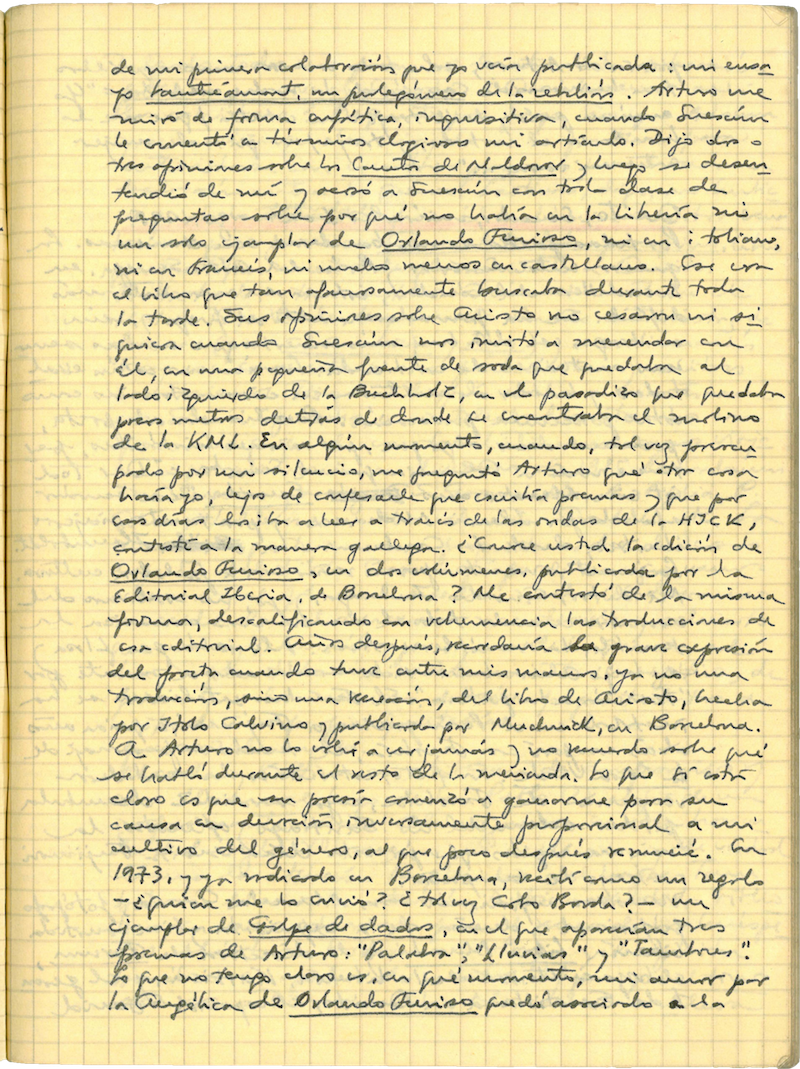 de mi primera colaboración que yo veía publicada: mi ensa
yo Lautréamont, un prolegómeno de la rebelión. Arturo me
miró de forma enfática, inquisitiva, cuando Suescún
le comentó en términos elogiosos mi artículo. Dijo dos o
tres opiniones sobre los Cantos de Maldoror y luego se desen
tendió de mí y acosó a Suescún con toda clase de
preguntas sobre por qué no había en la librería ni
un solo ejemplar de Orlando Furioso, ni en italiano,
ni en francés, ni mucho menos en castellano. Ese era
el libro que tan afanosamente buscaba durante toda
la tarde. Sus opiniones sobre Ariosto no cesaron ni si
quiera cuando Suescún nos invitó a merendar con
él, en una pequeña fuente de soda que quedaba al
lado izquierdo de la Buchholz, en el pasadizo que quedaba
pocos metros detrás de donde se encontraba el molino
de la KML. En algún momento, cuando, tal vez preocu
pado por mi silencio, me preguntó Arturo qué otra cosa
hacía yo, lejos de confesarle que escribía poemas y que por
esos días los iba a leer a través de las ondas de la HJCK,
contesté a la manera gallega. ¿Conoce usted la edición de
Orlando Furioso, en dos volúmenes, publicada por la
Editorial Iberia, de Barcelona? Me contestó de la misma
forma, descalificando con vehemencia las traducciones de
esa editorial. Años después, recordaría la grave expresión
del poeta cuando tuve entre mis manos, ya no una
traducción, sino una recreación, del libro de Ariosto, hecha
por Italo Calvino y publicada por Muchnik, en Barcelona.
A Arturo no lo volví a ver jamás y no recuerdo sobre qué
se habló durante el resto de la merienda. Lo que sí está
claro es que su poesía comenzó a ganarme para su
causa en duración inversamente proporcional a mi
cultivo del género, al que poco después renuncié. En
1973, y ya radicado en Barcelona, recibí como un regalo
—¿quién me lo envió? ¿tal vez Cobo Borda?— un
ejemplar de Golpe de dados, en el que aparecían tres
poemas de Arturo: "Palabra", "Lluvias" y "Tambores".
Lo que no tengo claro es, en qué momento, mi amor por
la Angélica de Orlando Furioso quedó asociado a la